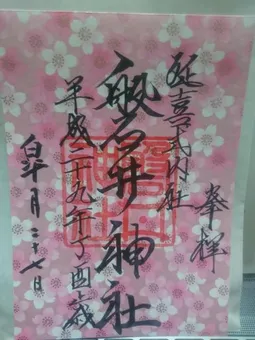 奉拝
延喜式内社
磐井神社
平成二十九年丁酉歳
皐月二十七日